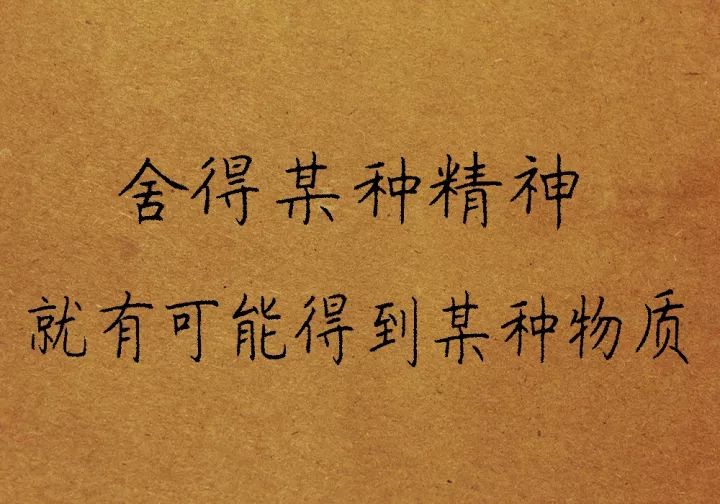 舍得某种精神
就有可能得到某种物质